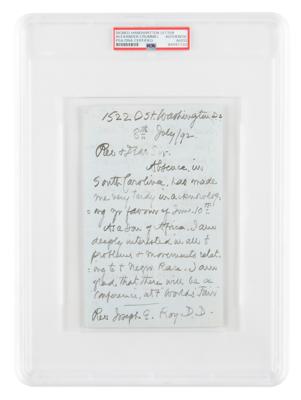 SIGNED HANDWRITTEN LETTER
ALEXANDER CRUMMELL
PSA/DNA CERTIFIED
AUTHENTIC
AUTO
PSA
1522 O St Washington DC
8th July/92
Rev & Dear Sir.
Absence, in
South Carolina, has made
me very tardy in acknowledg-
:ing yr favour of June 10th.
As a son of Africa I am
deeply interested in all
problems & movements relat-
:ing to Negro Race. I am
glad that there will be a
conference, at World's Fair
Rev Joseph E. Roy D.D.